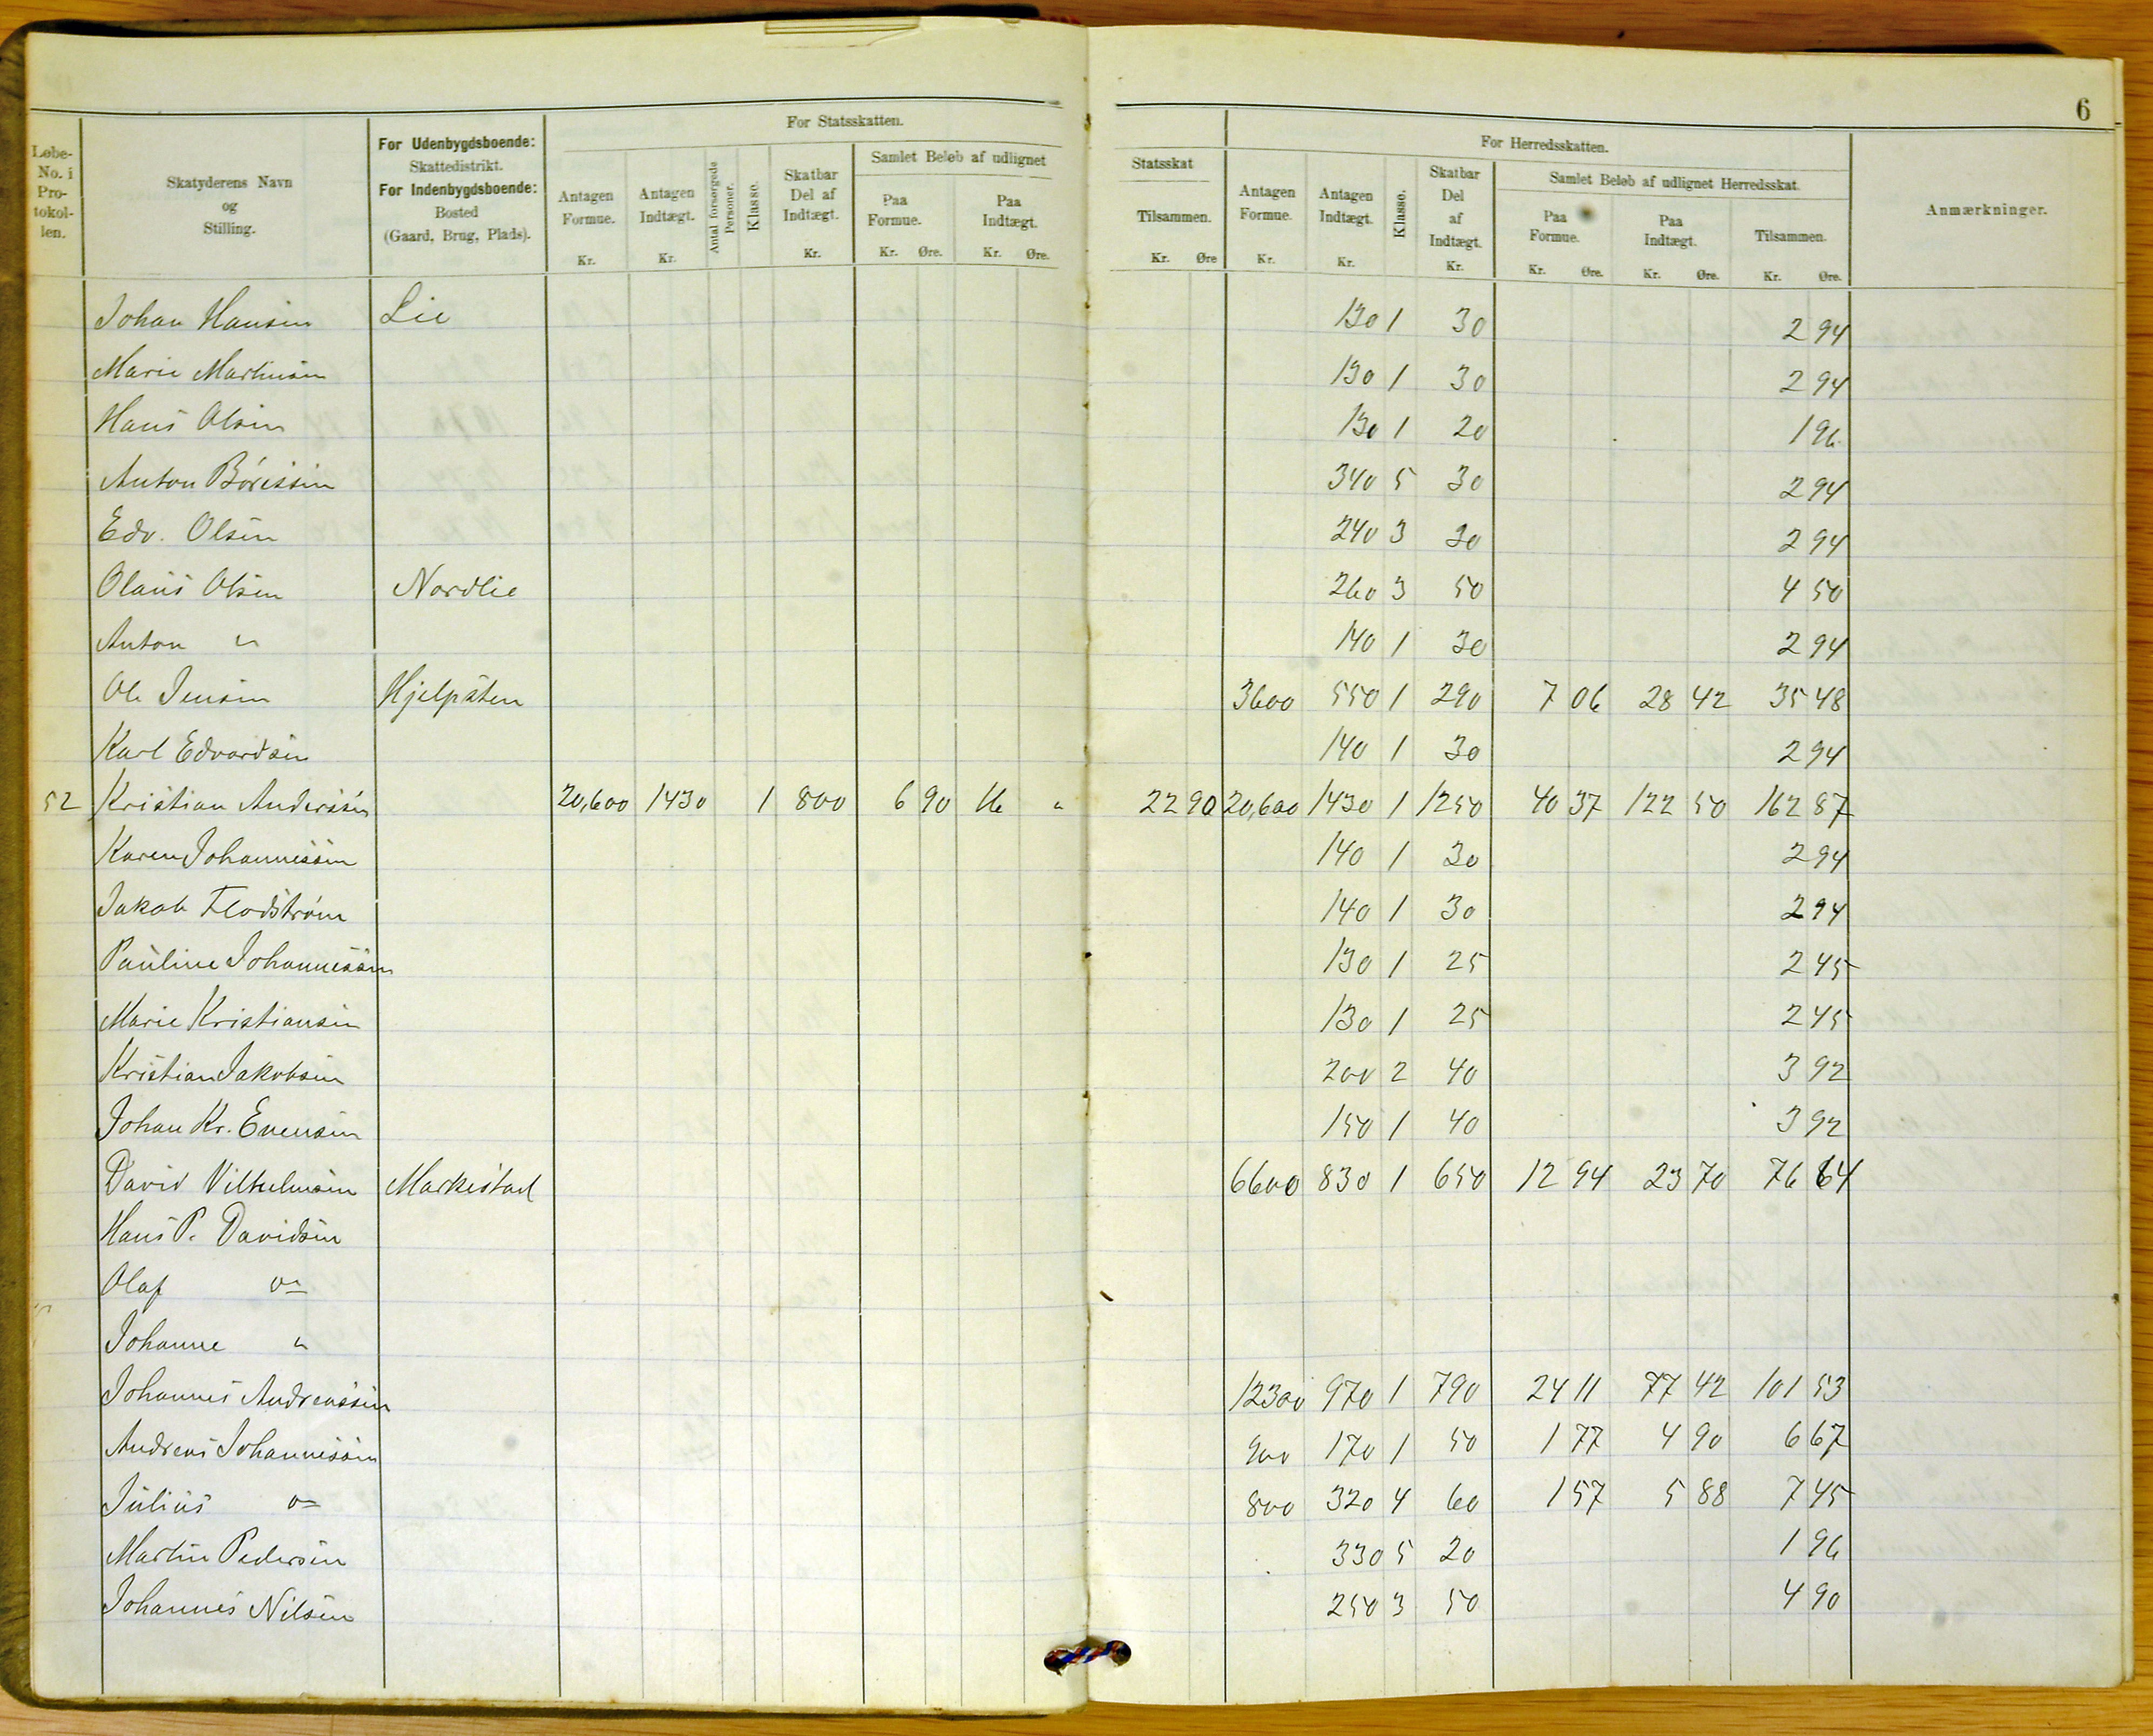 6
Løbe-No. i Protokollen.
Skatyderens Navn og Stilling.
For Udenbygdsboende: Skattedistrikt. For Indenbygdsboende: Bosted (Gaard, Brug, Plads).
For Statsskatten.
Antagen Formue. Kr.
Antagen Indtægt. Kr.
Antal forsørgede Personer.
Klasse.
Skatbar Del af Indtægt. Kr.
Samlet Beløb af udlignet
Paa Formue. Kr. Øre.
Paa Indtægt. Kr. Øre.
Statsskat
Tilsammen. Kr. Øre
For Herredsskatten.
Antagen Formue. Kr.
Antagen Indtægt. Kr.
Klasse.
Skatbar Del af Indtægt. Kr.
Samlet Beløb af udlignet Herredsskat.
Paa Formue. Kr. Øre.
Paa Indtægt. Kr. Øre.
Tilsammen. Kr. Øre.
Anmærkninger.
Johan Hansen Lie 130 1 30 2 94
Marie Martinsen 130 1 30 2 94
Hans Olsen 130 1 20 1 96
Anton Børessen 340 5 30 2 94
Edv. Olsen 240 3 30 2 94
Olaus Olsen Nordlie 260 3 50 4 50
Anton " 140 1 30 2 94
Ole Jensen Hjelpsten 3600 550 1 290 7 06 28 42 35 48
Karl Edvardsen 140 1 30 2 94
52 Kristian Anderssen 20,600 1430 1 800 6 90 16 " 22 90 20,600 1430 1 1250 40 37 122 50 162 87
Karen Johannessen 140 1 30 2 94
Jakob Flodstrøm 140 1 30 2 94
Pauline Johannessen 130 1 25 2 45
Marie Kristiansen 130 1 25 2 45
Kristian Jakobsen 200 2 40 3 92
Johan Kr. Evensen 150 1 40 3 92
David Vilhelmsen Markestad 6600 830 1 650 12 94 23 70 76 64
Hans P. Davidsen
Olaf "
Johanne "
Johannes Andreassen 12300 970 1 790 24 11 77 42 101 53
Andreas Johannessen 900 170 1 50 1 77 4 90 6 67
Julius " 800 320 4 60 1 57 5 88 7 45
Martin Pedersen 330 5 20 1 96
Johannes Nilsen 250 3 50 4 90